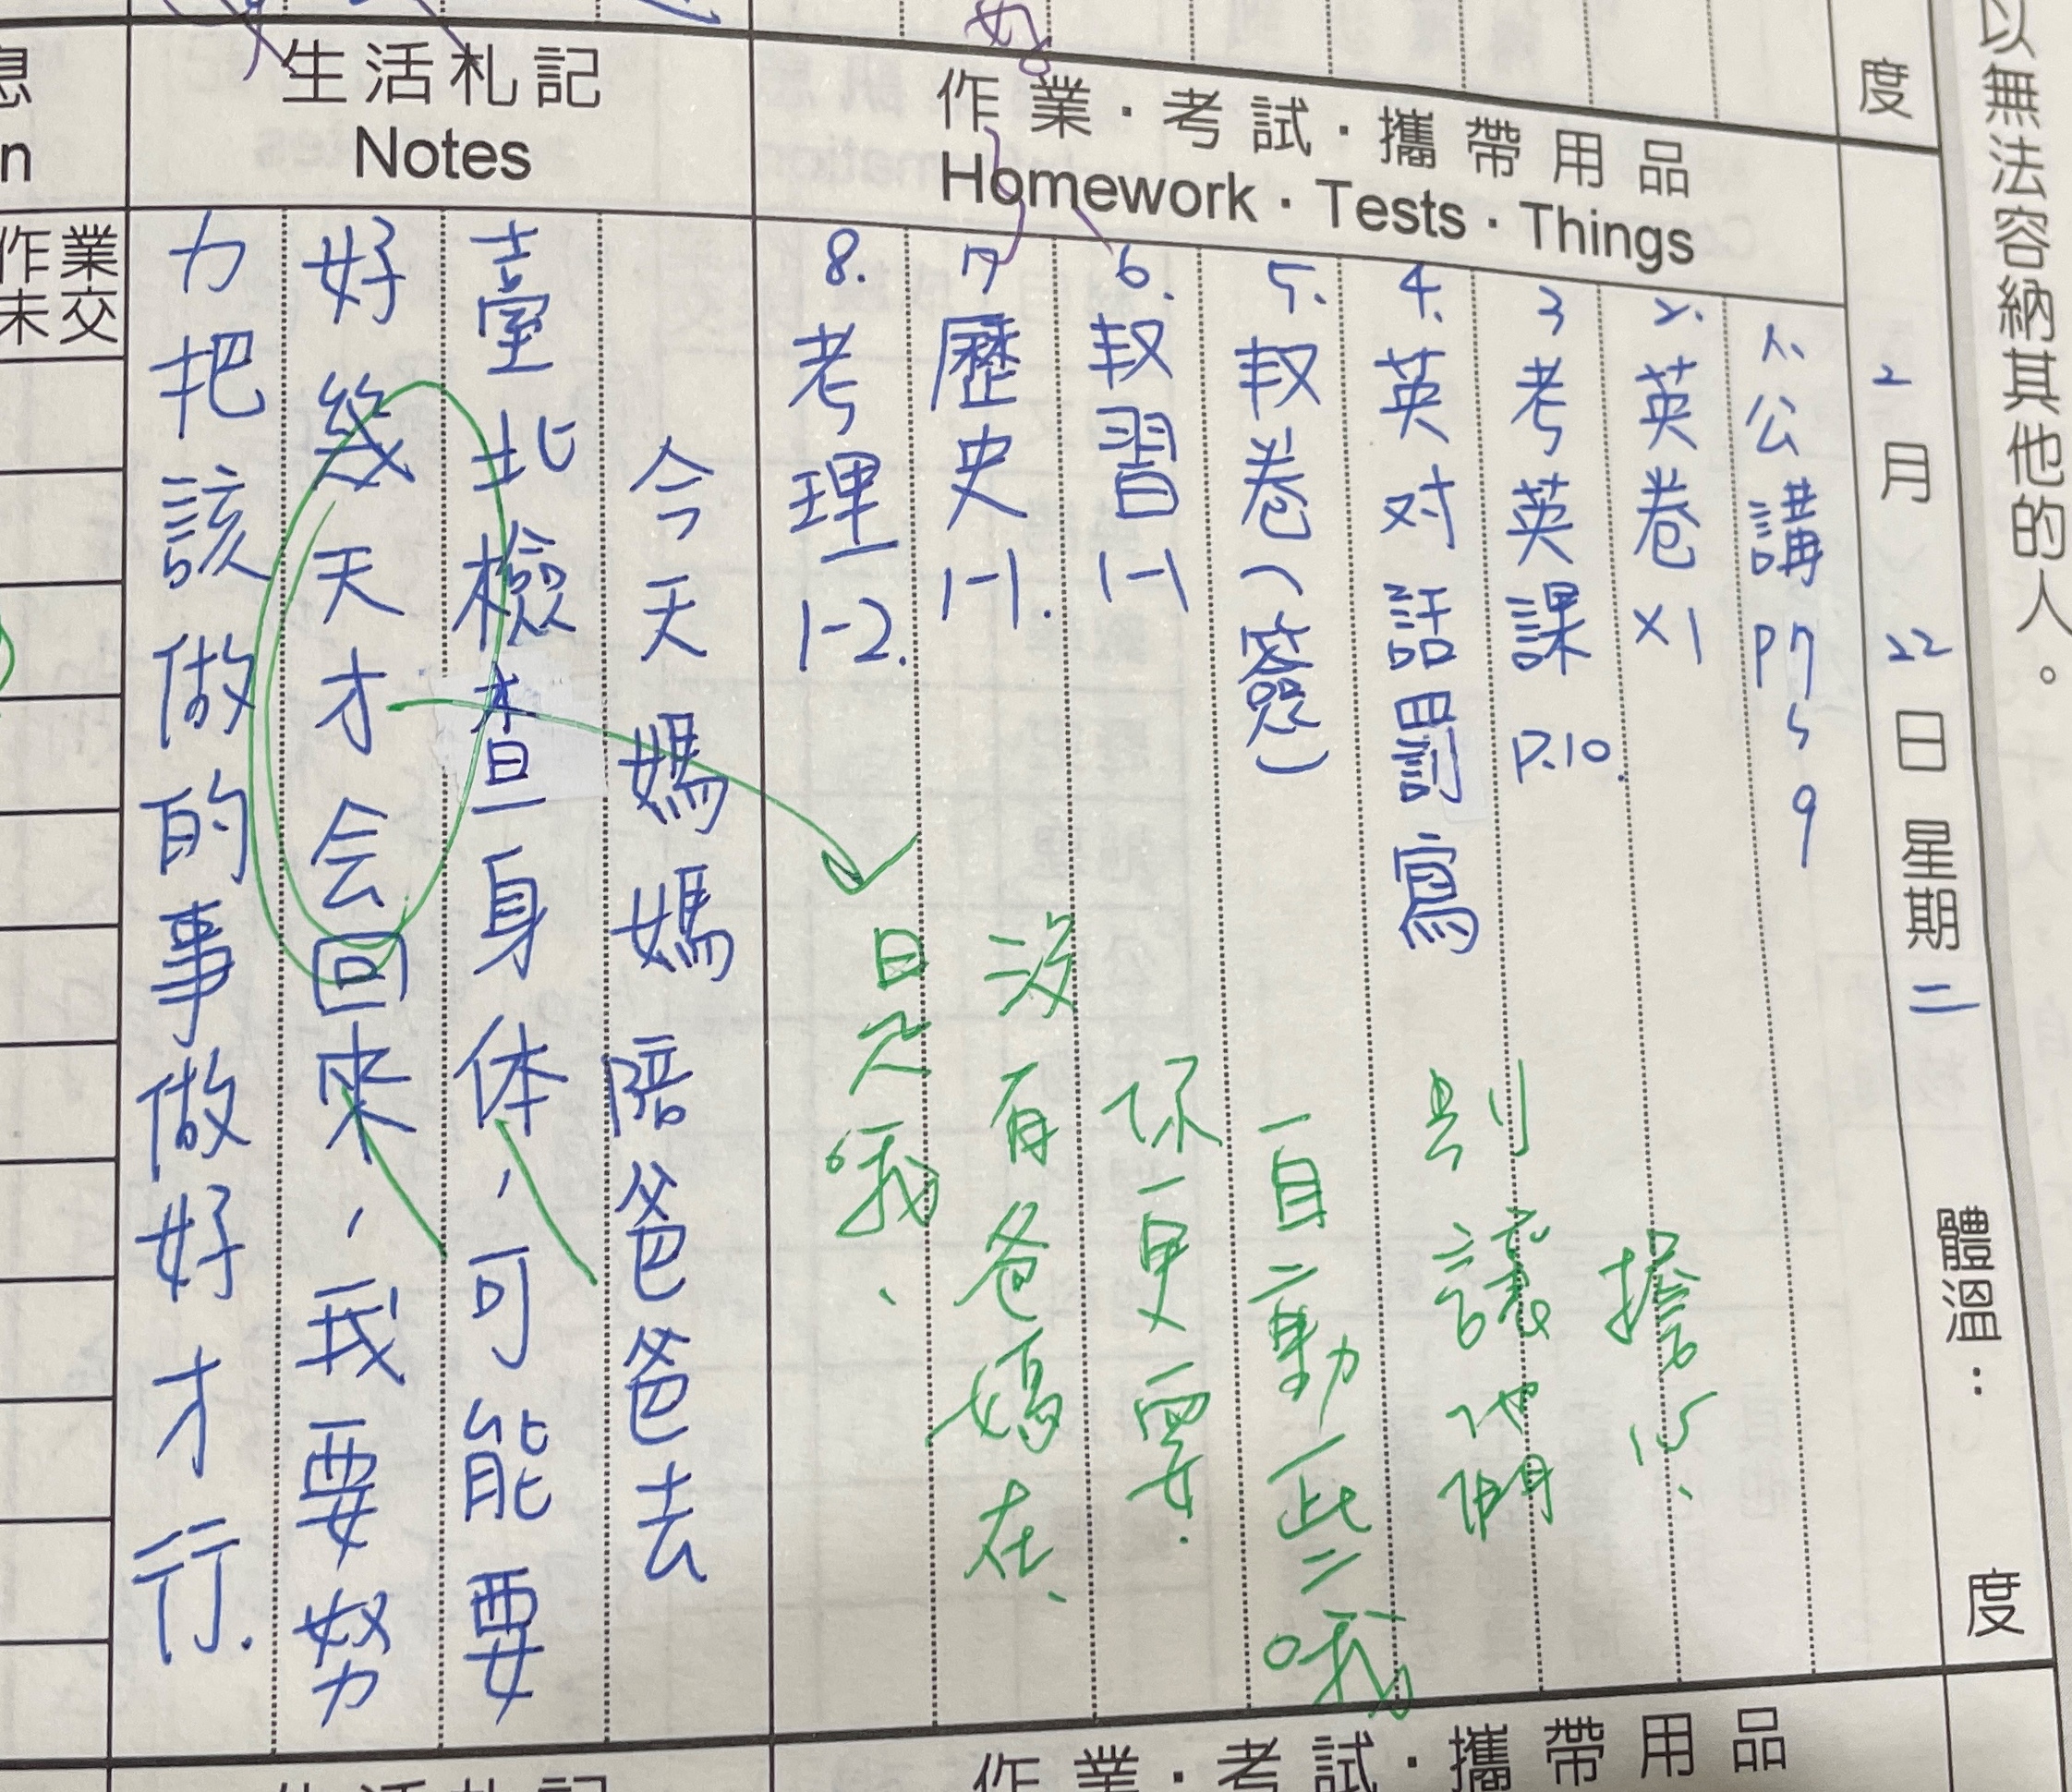 以無法容納其他的人。
度
2月22日星期二 體溫： 度
作業·考試·攜帶用品
Homework · Tests · Things
1. 公講 P7 5 9
2. 英卷 X1
3 考英課 P.10.
4. 英对話罰寫
5. 叔卷(簽)
6. 叔習1-1
7 歷史1-1.
8. 考理1-2.
是哦、
沒有爸媽在、
你更要
自動些哦
別讓他們
擔心、
生活札記
Notes
今天媽媽陪爸爸去
臺北檢查身体，可能要
好幾天才会回來，我要努
力把該做的事做好才行.
作業未交
作業·考試·攜帶用品
生活札記